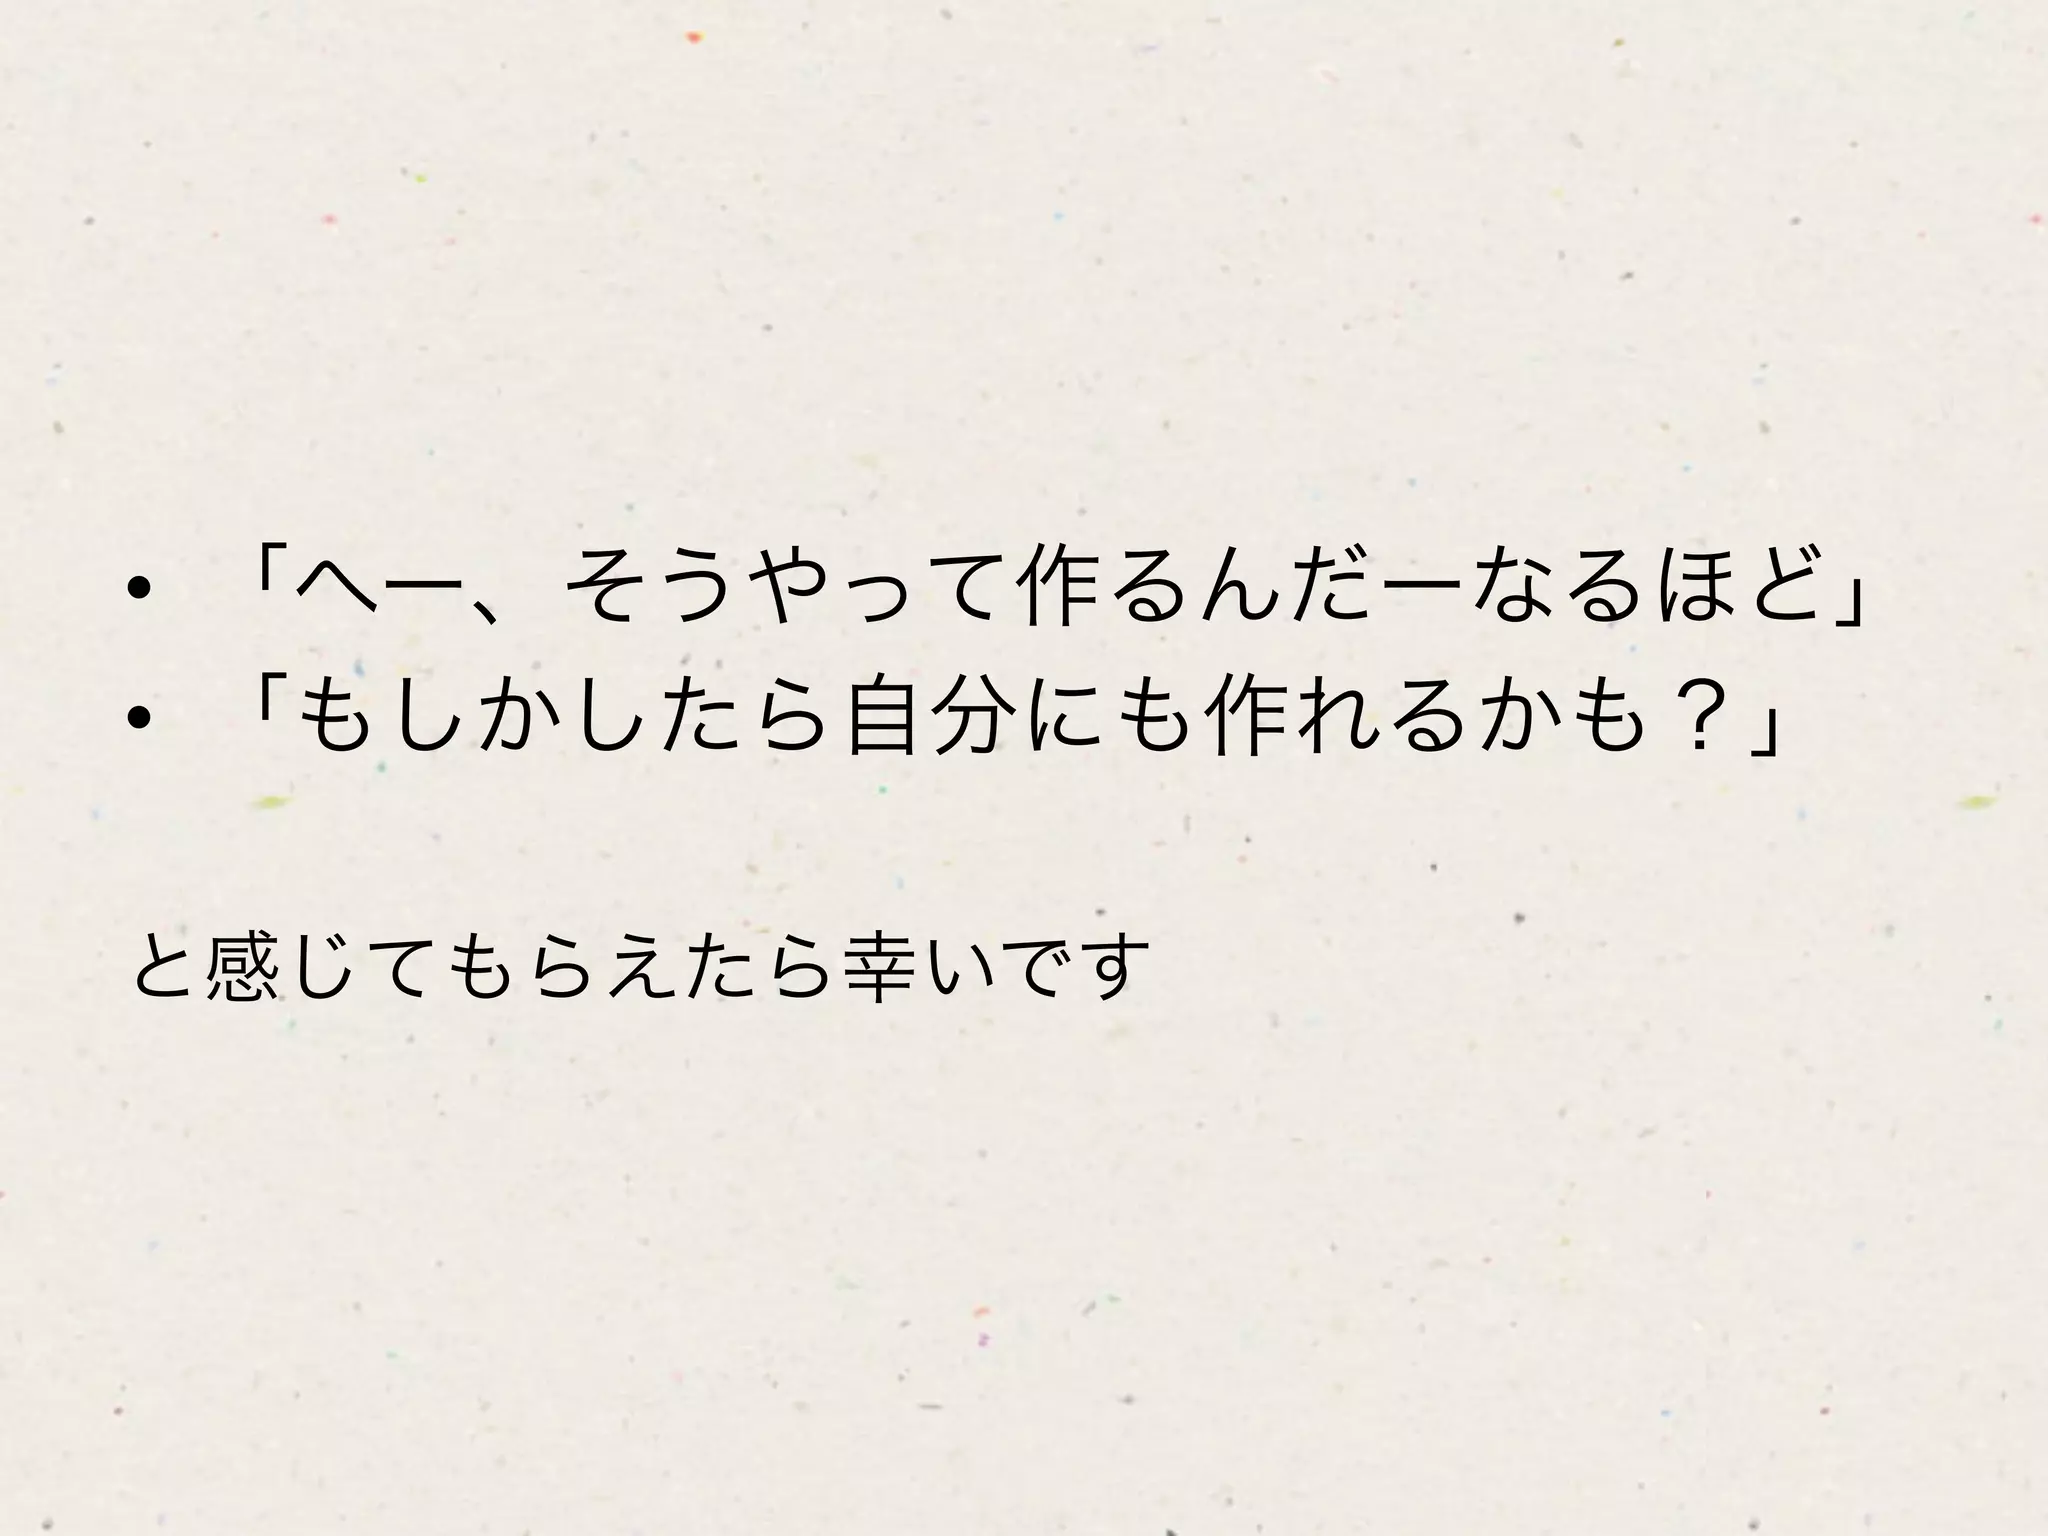 • 「へー、そうやって作るんだーなるほど」
• 「もしかしたら自分にも作れるかも？」
と感じてもらえたら幸いです